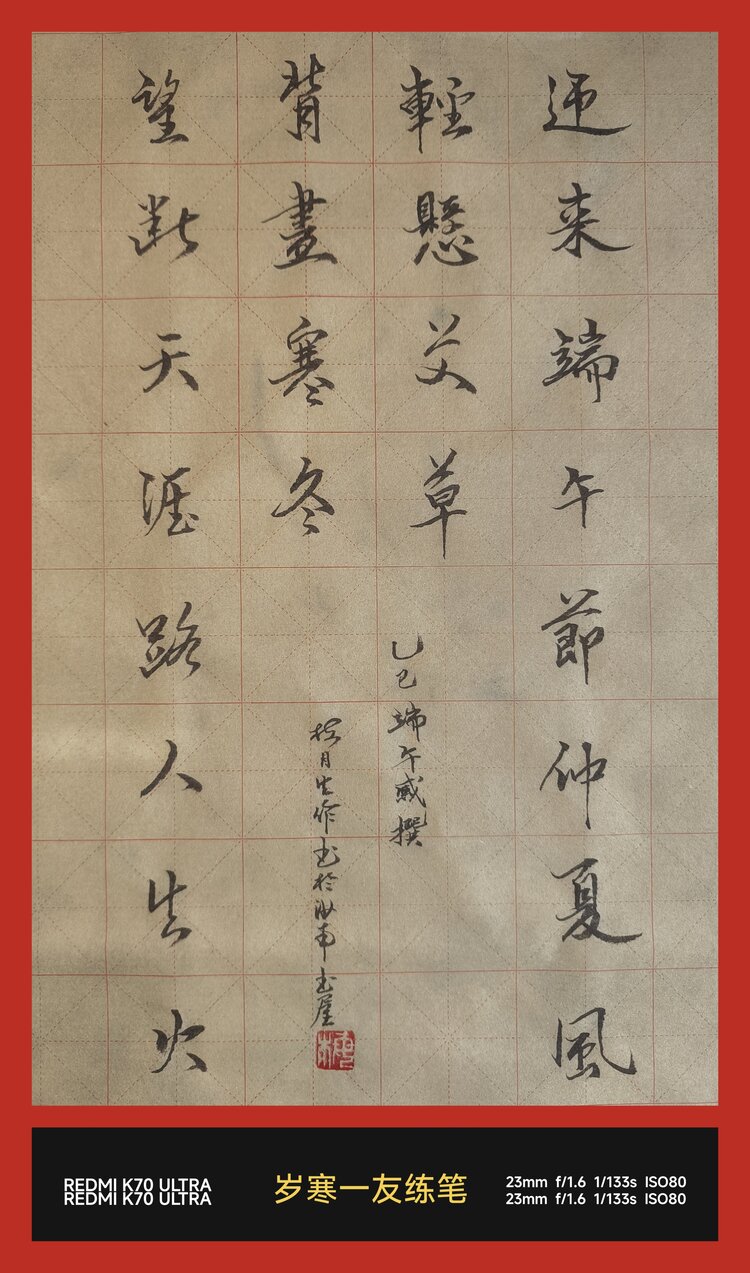 迎来端午節仲夏風
輕懸艾草
背晝寒冬
望断天涯路人生火
乙巳端午感撰
松月生作书於汝南书屋
REDMI K70 ULTRA
REDMI K70 ULTRA
岁寒一友练笔
23mm f/1.6 1/133s ISO80
23mm f/1.6 1/133s ISO80